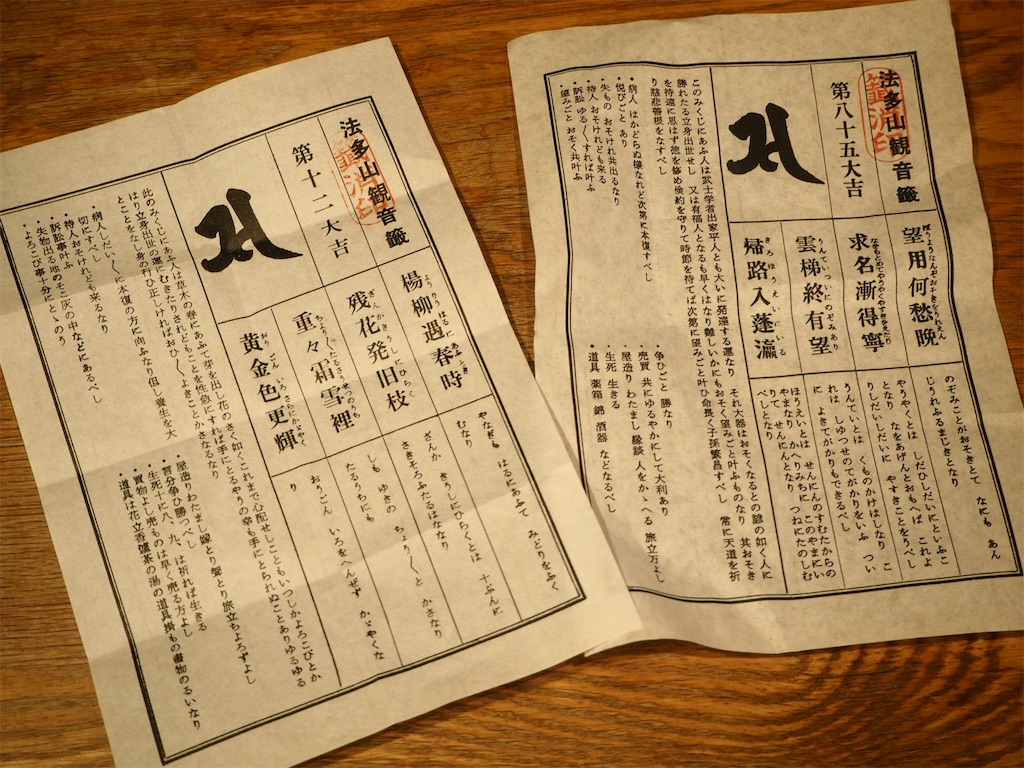 法多山観音籤
第八十五大吉
望用何愁晩
求名漸得寧
雲梯終有望
帰路入蓬瀛
のぞみことがおそきとて なにも あん
じうれふるまじきとなり
やうやくは しだひしだいにといふこ
となり なをあげんとおもへば これよ
りしだいしだいに やすきことをうべし
うんていとは くものかけはしなり こ
れは しゆつせのてがかりをいふ つい
に よきてがかりもできるべし
ほうえいとは せんにんのすむたからの
やまなり かへりみちに このやまにい
りて せんにんとなり つねにたのしむ
べしとなり
このみくじにあふ人は武士学者出家平人とも大いに発達する運なり それ大器はおそくなるとの諺の如く人に
勝れたる立身出世せし 又は有福人となるも早くはなり難しいかにもおそく望みごと叶ふものなり 其おそき
を待遠に思はず徳を修め倹約を守りて時節を待てば次第に望みごと叶ひ命長く子孫繁昌すべし 常に天道を祈
り慈悲善根をなすべし
・病人 はかどらぬ様なれど次第に本復すべし
・悦びごと あり
・失もの おそけれ共出るなり
・待人 おそけれども来る
・訴訟 ゆるくすれば叶ふ
・望みごと おそく共叶ふ
・争ひごと 勝なり
・売買 共にゆるやかにして大利あり
・屋造り わたまし 縁談 人をかゝへる 旅立万よし
・生死 生きる
・道具 薬箱 錦 酒器 などなるべし
法多山観音籤
第十二大吉
楊柳遇春時
残花発旧枝
重々霜雪裡
黄金色更輝
やなぎも はるにあふて みどりをふく
むなり
ざんか きうしにひらくとは 十ぶんに
さきそろふたるはななり
しも ゆきの ちょうくと かさなり
たるうちにも
おうごん いろをへんぜず かゞやくな
り
此のみくじにあふ人は草木の春にあふて芽を出し花のさく如くこれまで心配せしこともいつしかよろこびとか
はり立身出世の運にむきたりされどもことを性急にすれば手にとるやりの幸も手にとられぬことありゆるゆる
とことをなし身の行ひ正しければおひくよきことかさなるなり
・病人しだいくに本復の方に向ふなり但し養生を大
切にすべし
・待人おそけれども来るなり
・訴訟事叶ふ
・失物出る地のそこ灰の中などにあるべし
・よろこび事十分にとゝのり
・屋造りわたまし嫁とり聟とり旅立ちよろずよし
・言分争ひ勝つべし
・生死十に八、九、は祈れば生きる
・買物よし売ものは早く売る方よし
・道具は花立香爐茶の湯の道具掛もの書物のるいなり